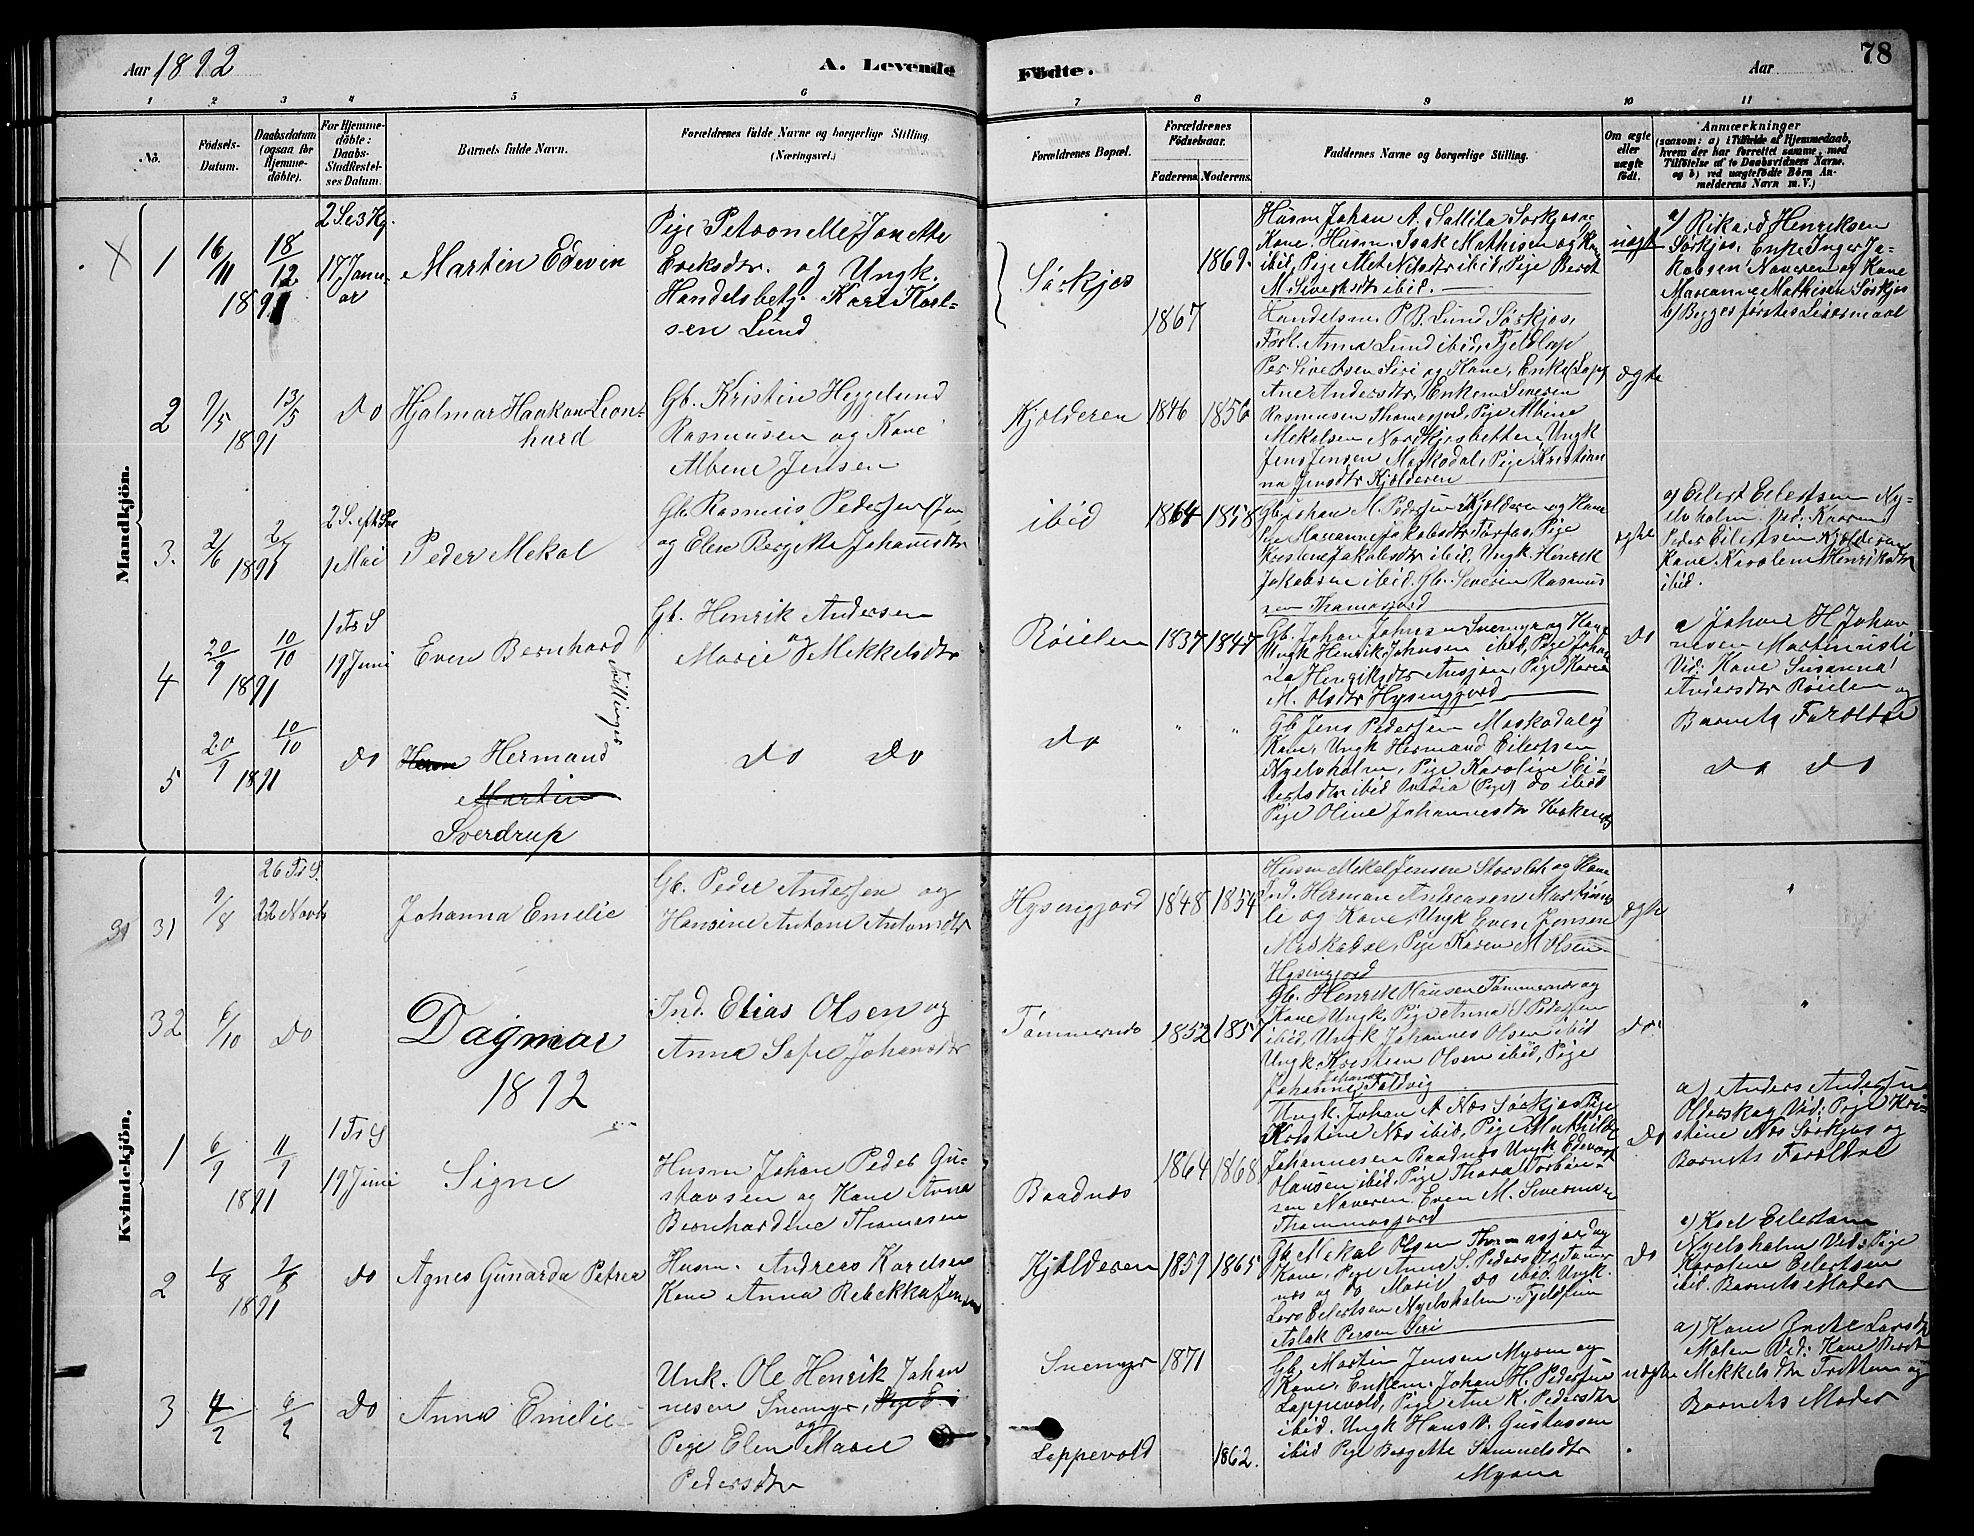 Aar 1892
A. Levende
Fødte.
Aar
78
1 2 3 4 5 6 7 8 9 10 11
No.
Fødsels-
Datum.
Daabsdatum
(ogsaa for
Hjemme-
døbte).
For Hjemme-
døbte:
Daabs-
Stadfæstel-
ses Datum.
Barnets fulde Navn.
Forældrenes fulde Navne og borgerlige Stilling.
(Næringsvei.)
Forældrenes Bopæl.
Forældrenes
Fødselsaar.
Faderens. Moderens.
Faddernes Navne og borgerlige Stilling.
Om ægte
eller
uægte
født.
Anmærkninger
(saasom: a) i Tilfælde af Hjemmedaab,
hvem der har forrettet samme, med
Tilføielse af to Daabsvidners Navne.
og b) ved uægtefødte Børn An-
melderens Navn m. V.)
Mandkjøn.
1
16/11
18/12
1891
17 Janu-
ar
Martin Edevin
Pige Petronelle Janette
Eriksdtr. og Ungk.
Handelsbetj. Karl Karl-
sen Lund
Sørkjos
1867
1869.
Husm Johan A. Sallila Sørkjos og
Kone. Husm. Isak Mathisen og Kone
ibid, Pige Met Nilsdtr ibid, Pige Berit
M. Sivertsdtr ibid.
Handelsm. P. B. Lund Sørkjos,
Frøk. Anna Lund ibid, Fjeldlap
uægt
a) Rikard Henriksen
Sørkjos, Enke Inger Ja-
kobsen Naveren og Kone
Marianne Mathisen Sørkjos
b) Begges første Leiermaal
2
7/5
13/5
1891
do
Hjalmar Haakon Leon-
hard
Gb. Kristin Heggelund
Rasmusen og Kone
Albene Jensen
Kjelderen
1846
1856
Per Sivertsen Siri og Kone, Enke (Lap)
Ane Andersdtr, Enkem Severin
Rasmusen Thamasjord, Pige Albine
Mekalsen Nordkjosbotten, Ungk
Jens Jensen Maskodal, Pige Kristian
na Jensdtr Kjelderen
ægte
3.
2/6
1891
1 Mai
Peder Mekal
Gb. Rasmus Pedersen
og Elen Bergitte Johansdtr
ibid
1864
1858
Gb. Johan M. Pedersen Kjelderen og Kone
Pige Marianne Jakobsdtr Torfos, Pige
Kristene Jakobsdtr ibid, Ungk. Henrik
Jakobsen ibid. Gb. Severin Rasmus
sen Thamasjord
ægte
a) Eilert Eilertsen Ny-
elvholm. Vid: Karen
Peder Eilertsen Kjelderen
Kone Karolene Henriksdtr
ibid.
4
20/9
10/10
1891
1 Tr S
19 Juni
Even Bernhard
Tvillinger
Gb. Henrik Andersen
og
Marie Mekkelsdtr
Røielen
1837
1847
Gb. Johan Johnsen Snemyr og Kone
Ungk Henrik Johnsen ibid, Pige Johan
na Henriksdtr Ansjøn, Pige Karen
M. Olsdtr Hysingjord
do
a) Johan H Johan
nesen Martinusli
Vid: Kone Susanna
Andersdtr Røielen og
Barnets Forældre
5
20/9
10/10
1891
do
Herm Hermand
Martin
Sverdrup
do do
do
" "
Gb. Jens Pedersen Maskodal og
Kone, Ungk Hermand Eilertsen
Nyelvholm, Pige Karoline Ei-
lertsdtr ibid
Pige Oline Johannesdtr
do do
Kvindekjøn.
31
9/8
26 Tr S.
22 Novb
Johanna Emelie
Gb. Peder Andersen og
Hansine Antone Antonsdtr
Hysengjord
1848
1854
Husm Mekal Jensen Storsleb og Kone
Ind. Herman Andreasen Martinus
li og Kone, Ungk Even Jensen
Maskodal, Pige Karen M Olsen
Hysingjord
ægte
"
32
6/10
do
Dagmar
Ind. Elias Olsen og
Anne Sofie Johansdtr
Tømmernæs
1852
1857
Gb. Henrik Hansen Tømmernæs og
Kone, Ungk, Pige Anna S Pedersen
ibid, Ungk Johannes Olsen ibid
Ungk. Kristian Olsen ibid, Pige
Johanne Foldvig
do
"
1892
1
6/9
11/9
1891
1 Tr S
19 Juni
Signe
Husm Johan Peder Gu-
stavsen og Kone Anna
Bernhardine Thomasen
Baadnes
1864
1868
Ungk. Johan A Næs Sørkjos, Pige
Kristine Næs ibid, Pige Mathilde
Johannesen Baadnes Ungk Edevart
Hansen ibid, Pige Thora Torbjørn-
sen Naveren, Even M. Severinsen
Thammasjord
do
a) Anders Andersen
Olderskog Vid: Pige Kri-
stine Næs Sørkjos og
Barnets Forældre
2
1/8
2/8
1891
do
Agnes Gunarda Petrea
Husm. Andreas Karelsen
Kone Anna Rebekka Jensen
Kjelderen
1859
1865
Gb. Mekal Olsen Thomasjord og
Kone, Pige Anne S. Pedersdtr Tømmer
næs og do Marit do ibid. Ungk.
Lars Eilertsen Nyelvholm. Fjeldfin
Aslak Persen Siri
do
a) Karl Eilertsen
Nyelvholm Vid: Pige
Karoline Eilertsen
ibid. Barnets Moder
3
4/2
6/2
do
Anna Emelie
Unk. Ole Henrik Johan
nesen Snemyr,
og
Pige Elen Marie
Pedersdtr
Snemyr
Lappevold
1871
1862.
Gb. Martin Jensen Myren og
Kone, Enkem. Johan H. Pedersen
Lappevold, Pige Ane K. Pedersdtr
ibid. Ungk Hans V. Gustavsen
ibid Pige Bergitte Samuelsdtr
Myren
uægte
a) Kone Grete Larsdtr
Molen Vid: Kone Berit
Mekkelsdtr Tritten og
Barnets Moder